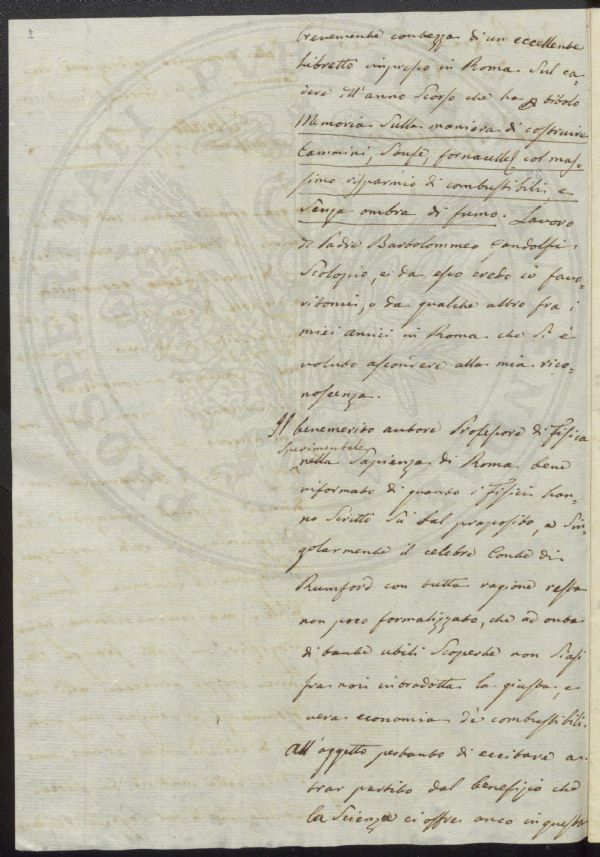 2
brevemente contezza di un eccellente
libretto impresso in Roma sul ca-
dere dell'anno scorso che ha p titolo
Memoria sulla maniera di costruire
Cammini, Stufe, fornacelle col mas-
simo risparmio di combustibili, e
senza ombra di fumo. Lavoro
di Padre Bartolommeo Gandolfi
Scolopio, e da esso credo io favo-
ritomi, o da qualche altro fra i
miei amici in Roma che si è
voluto ascondere alla mia rico-
noscenza.
Il benemerito autore Professore di Fisica
Sperimentale
nella Sapienza di Roma bene
informato di quanto i Fisici han-
no scritto su tal proposito, e sin-
golarmente il celebre Conte di
Rumford con tutta ragione resta
non poco formalizzato, che ad onta
di tante utili scoperte non siasi
fra noi introdotta la giusta e
vera economia de' combustibili.
All'oggetto pertanto di eccitare a
trar partito dal benefizio che
la Scienza ci offre anco in questa
PROSPERITATI PVBLICAE